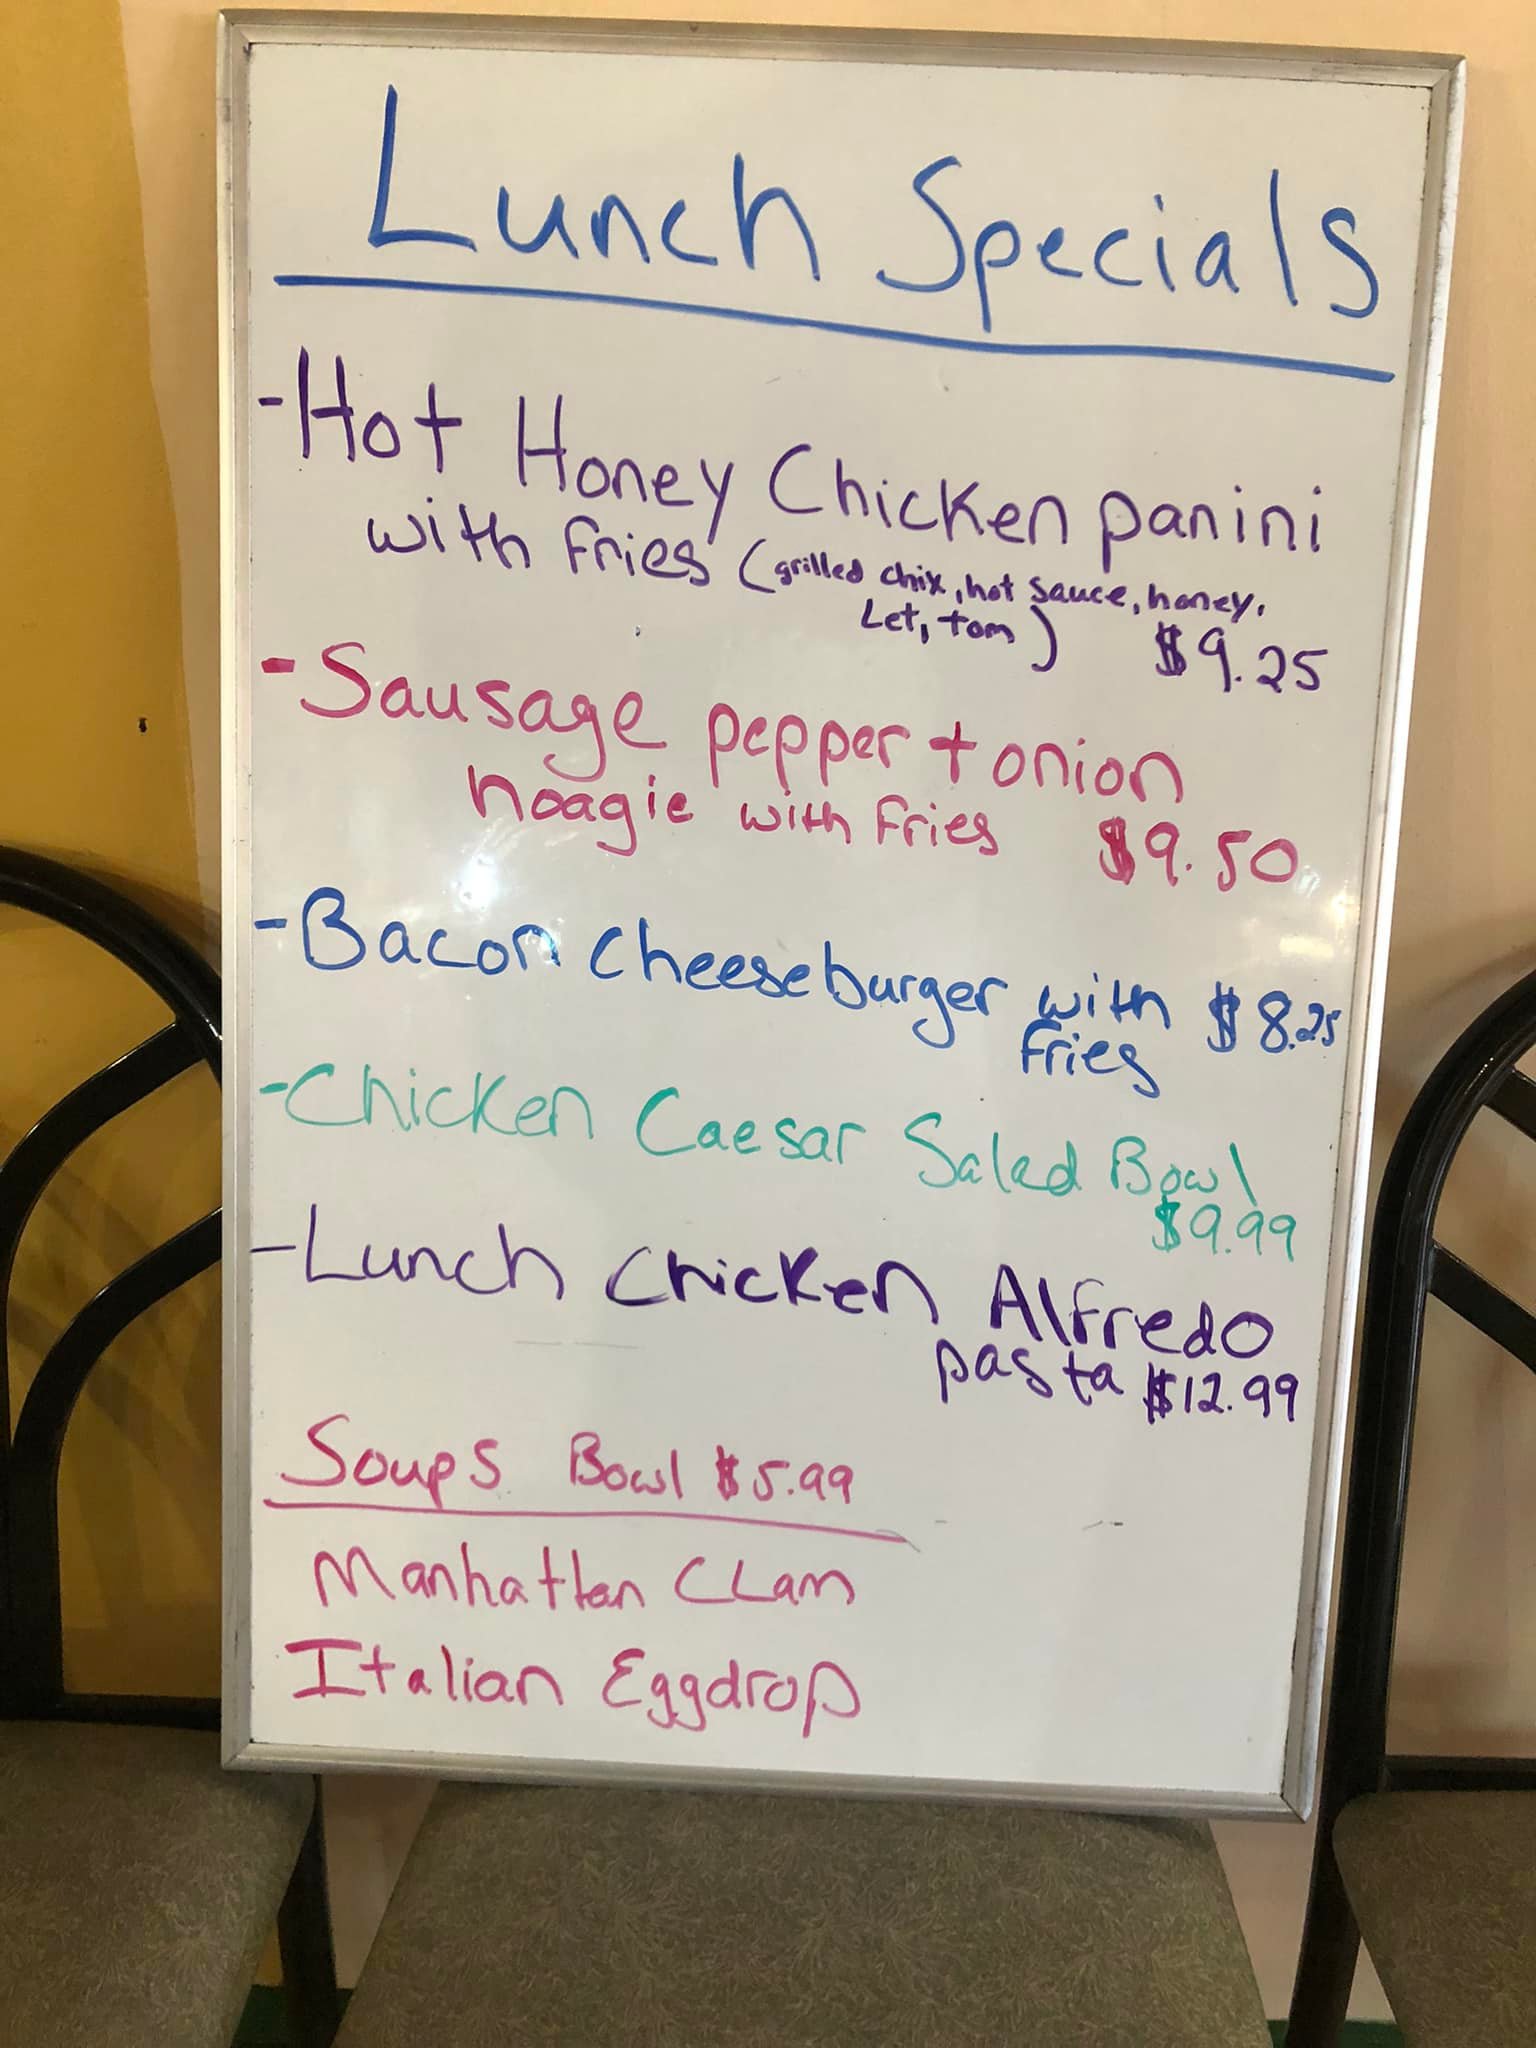 Lunch Specials
- Hot Honey Chicken panini
with fries (grilled chix, hot sauce, honey,
Let, tom) $9.25
- Sausage pepper + onion
hoagie with fries $9.50
- Bacon cheeseburger with $8.25
fries
- Chicken Caesar Salad Bowl
$9.99
- Lunch Chicken Alfredo
pasta $12.99
Soups Bowl $5.99
Manhattan Clam
Italian Eggdrop